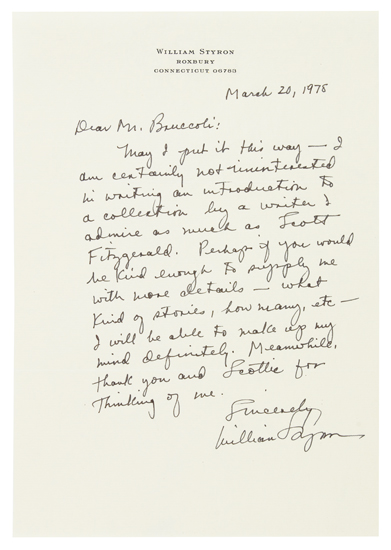 WILLIAM STYRON
ROXBURY
CONNECTICUT 06783
March 20, 1978
Dear Mr. Bruccoli:
May I put it this way — I
am certainly not uninterested
in writing an introduction to
a collection by a writer I
admire as much as Scott
Fitzgerald. Perhaps if you would
be kind enough to supply me
with more details — what
kind of stories, how many, etc —
I will be able to make up my
mind definitely. Meanwhile,
thank you and Scottie for
thinking of me.
Sincerely,
William Styron